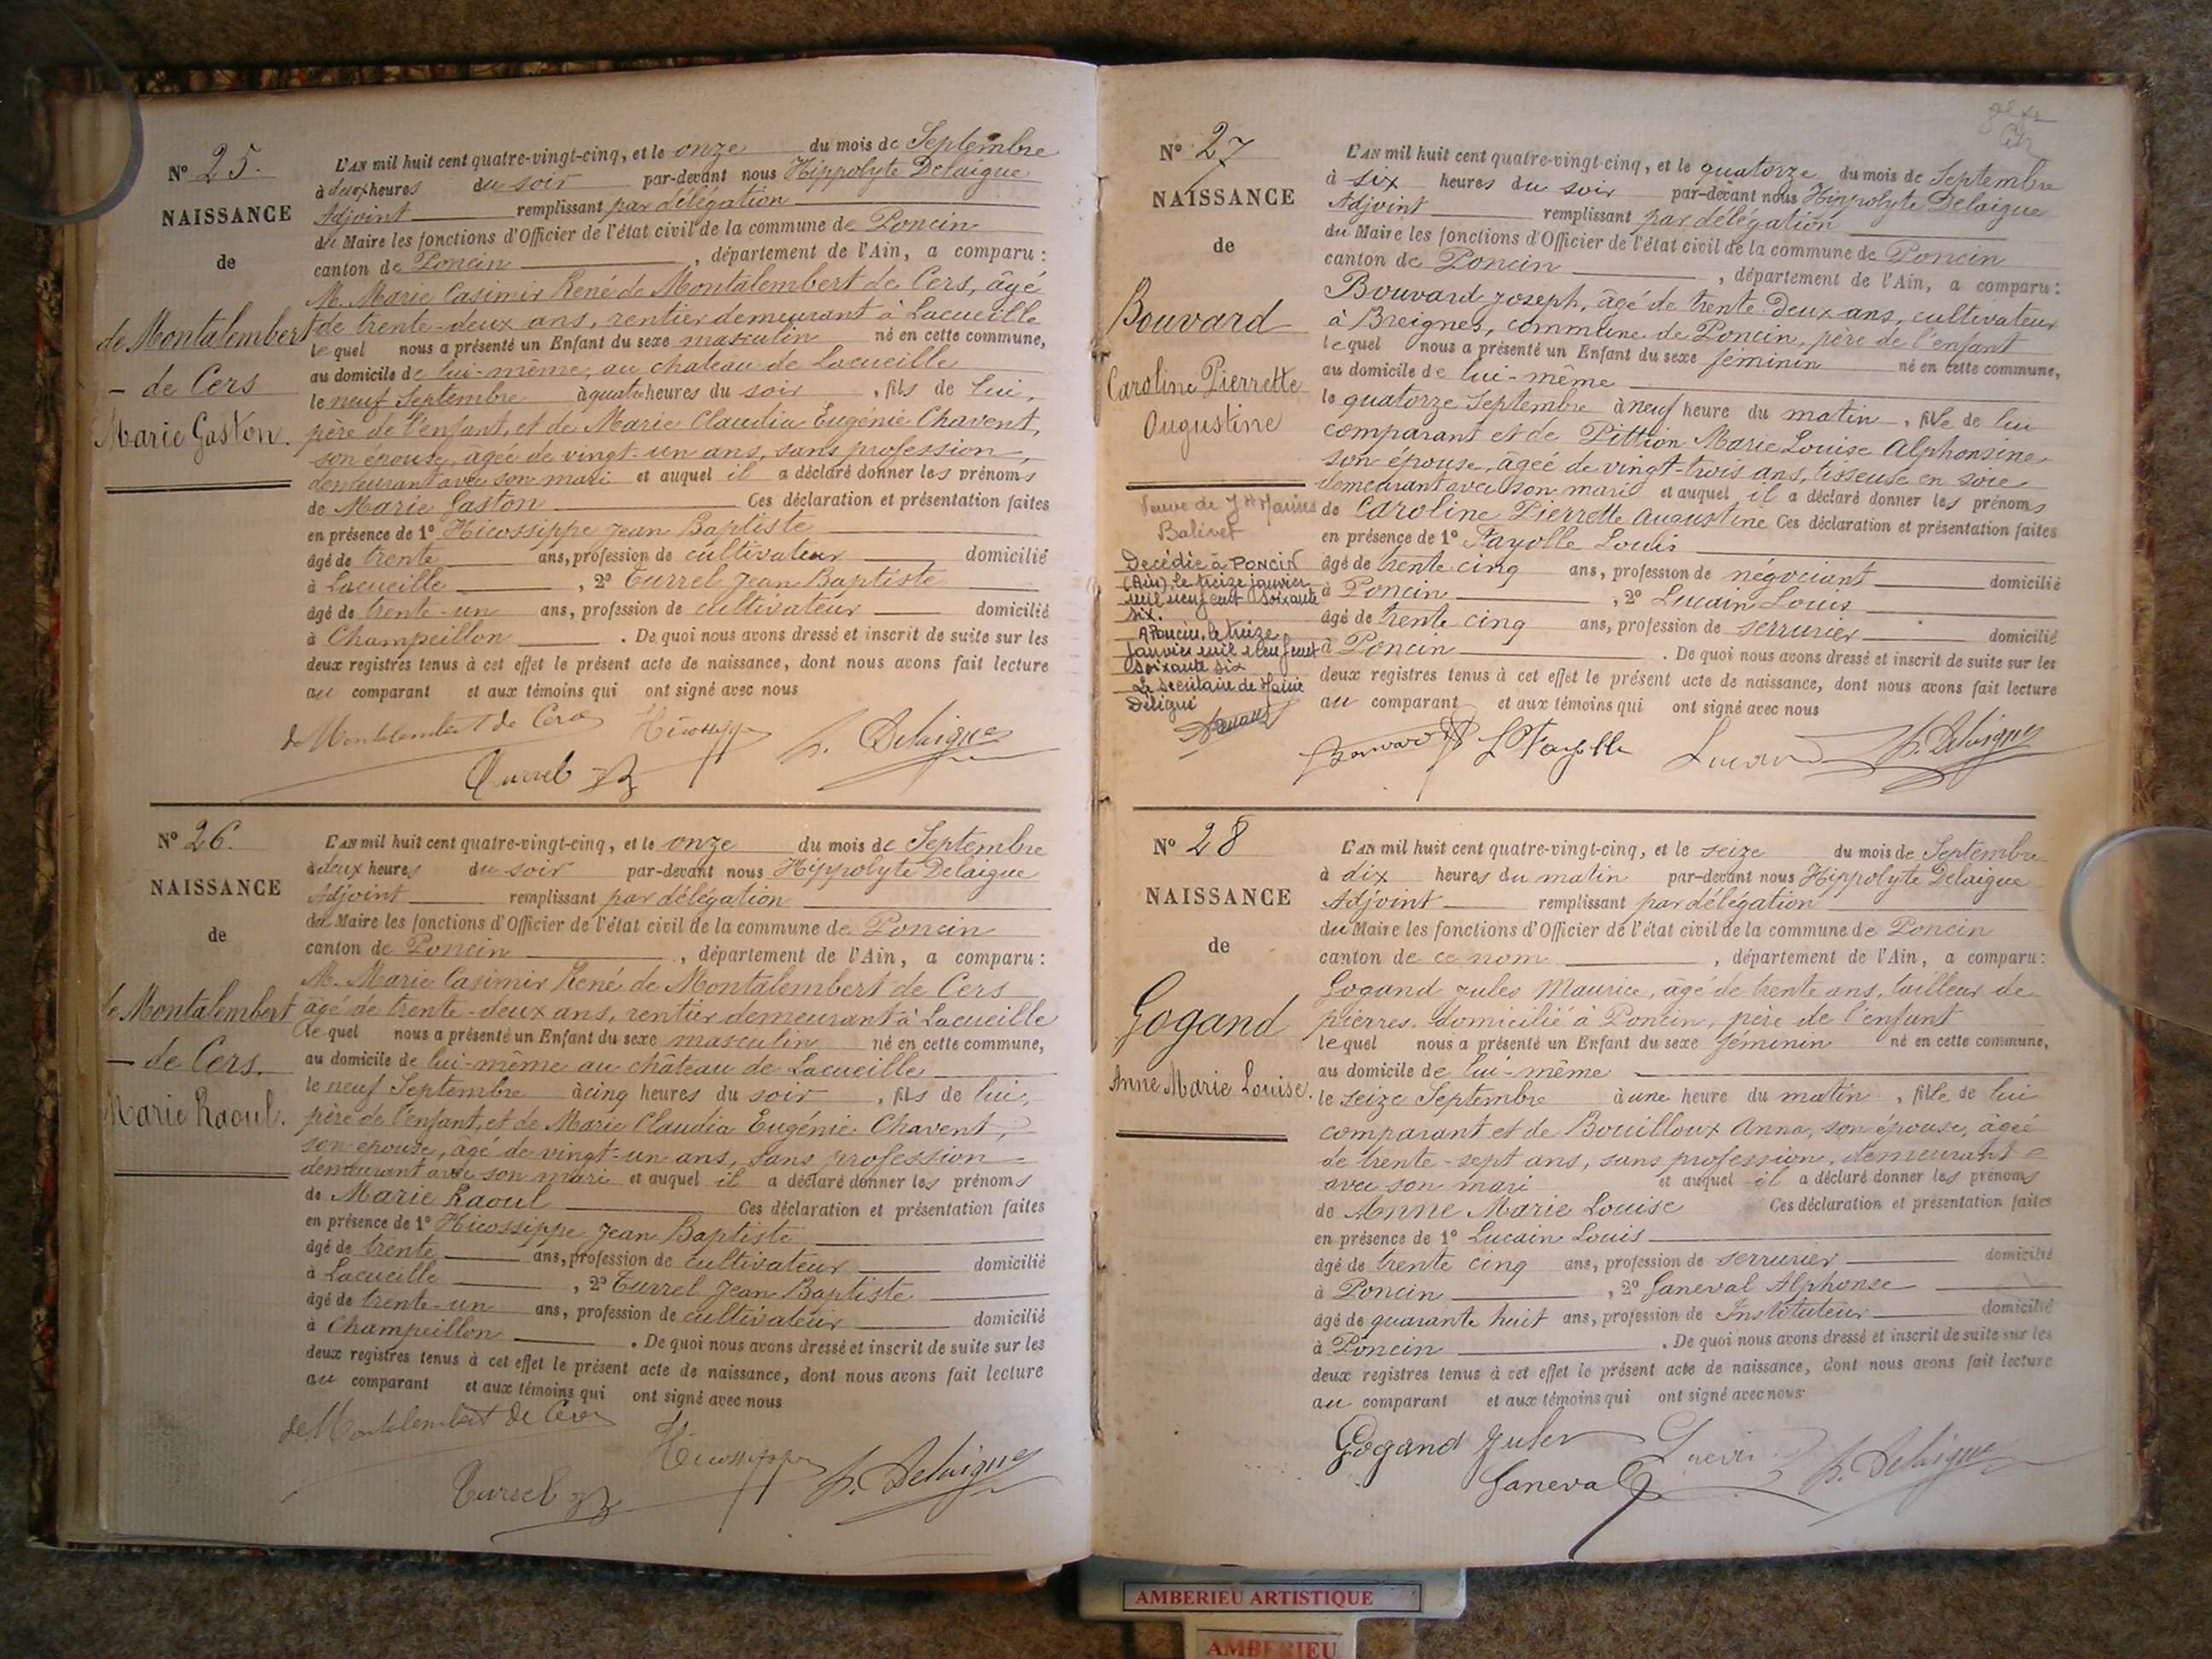 N° 25.
NAISSANCE
de
de Montalembert
– de Cers
Marie Gaston.
L'AN mil huit cent quatre-vingt-cinq, et le onze du mois de Septembre
à deux heures du soir par-devant nous Hippolyte Delaigue
Adjoint remplissant par délégation
du Maire les fonctions d'Officier de l'état civil de la commune de Poncin
canton de Poncin, département de l'Ain, a comparu :
M. Marie Casimir René de Montalembert de Cers, âgé
de trente-deux ans, rentier demeurant à Lacueille
lequel nous a présenté un Enfant du sexe masculin né en cette commune,
au domicile de lui-même, au chateau de Lacueille
le neuf Septembre à quatre heures du soir, fils de lui,
père de l'enfant, et de Marie Claudia Eugénie Chavent,
son épouse, âgée de vingt-un ans, sans profession,
demeurant avec son mari et auquel il a déclaré donner les prénoms
de Marie Gaston Ces déclaration et présentation faites
en présence de 1° Hicossippe Jean Baptiste
âgé de trente ans, profession de cultivateur domicilié
à Lacueille, 2° Turrel Jean Baptiste
âgé de trente-un ans, profession de cultivateur domicilié
à Champeillon. De quoi nous avons dressé et inscrit de suite sur les
deux registres tenus à cet effet le présent acte de naissance, dont nous avons fait lecture
au comparant et aux témoins qui ont signé avec nous
de Montalembert de Cers Hicossippe h. Delaigue
Turrel JB
N° 26.
NAISSANCE
de
de Montalembert
– de Cers.
Marie Raoul.
L'AN mil huit cent quatre-vingt-cinq, et le onze du mois de Septembre
à deux heures du soir par-devant nous Hippolyte Delaigue
Adjoint remplissant par délégation
du Maire les fonctions d'Officier de l'état civil de la commune de Poncin
canton de Poncin, département de l'Ain, a comparu :
M. Marie Casimir René de Montalembert de Cers
âgé de trente-deux ans, rentier demeurant à Lacueille
lequel nous a présenté un Enfant du sexe masculin né en cette commune,
au domicile de lui-même au château de Lacueille
le neuf Septembre à cinq heures du soir, fils de lui,
père de l'enfant, et de Marie Claudia Eugénie Chavent,
son epouse, âgé de vingt-un ans, sans profession
demeurant avec son mari et auquel il a déclaré donner les prénoms
de Marie Raoul Ces déclaration et présentation faites
en présence de 1° Hicossippe Jean Baptiste
âgé de trente ans, profession de cultivateur domicilié
à Lacueille, 2° Turrel Jean Baptiste
âgé de trente-un ans, profession de cultivateur domicilié
à Champeillon. De quoi nous avons dressé et inscrit de suite sur les
deux registres tenus à cet effet le présent acte de naissance, dont nous avons fait lecture
au comparant et aux témoins qui ont signé avec nous
de Montalembert de Cers
Hicossippe
Turrel JB h. Delaigue
N° 27
NAISSANCE
de
Bouvard
Caroline Pierrette
Augustine
Veuve de Jh Marius
Balivet
Decédée à PONCIN
(Ain), le treize janvier
mil neuf cent soixante
six.
A Poncin, le treize
janvier mil neuf cent
soixante six
Le Secrétaire de Mairie
Délégué
L'AN mil huit cent quatre-vingt-cinq, et le quatorze du mois de Septembre
à six heures du soir par-devant nous Hippolyte Delaigue
Adjoint remplissant par délégation
du Maire les fonctions d'Officier de l'état civil de la commune de Poncin
canton de Poncin, département de l'Ain, a comparu :
Bouvard Joseph, âgé de trente-deux ans, cultivateur
à Breignes, commune de Poncin, père de l'enfant
lequel nous a présenté un Enfant du sexe féminin né en cette commune,
au domicile de lui-même
le quatorze Septembre à neuf heure du matin, fille de lui
comparant et de Pittion Marie Louise Alphonsine
son épouse, âgée de vingt-trois ans, tisseuse en soie
demeurant avec son mari et auquel il a déclaré donner les prénoms
de Caroline Pierrette Augustine Ces déclaration et présentation faites
en présence de 1° Fayolle Louis
âgé de trente cinq ans, profession de négociant domicilié
à Poncin, 2° Lucain Louis
âgé de trente cinq ans, profession de serrurier domicilié
à Poncin. De quoi nous avons dressé et inscrit de suite sur les
deux registres tenus à cet effet le présent acte de naissance, dont nous avons fait lecture
au comparant et aux témoins qui ont signé avec nous
Bouvard L Fayolle Lucain h. Delaigue
N° 28
NAISSANCE
de
Gogand
Anne Marie Louise.
L'AN mil huit cent quatre-vingt-cinq, et le seize du mois de Septembre
à dix heures du matin par-devant nous Hippolyte Delaigue
Adjoint remplissant par délégation
du Maire les fonctions d'Officier de l'état civil de la commune de Poncin
canton de ce nom, département de l'Ain, a comparu :
Gogand Jules Maurice, âgé de trente ans, tailleur de
pierres, domicilié à Poncin, père de l'enfant
lequel nous a présenté un Enfant du sexe féminin né en cette commune,
au domicile de lui-même
le seize Septembre à une heure du matin, fille de lui
comparant et de Bouilloux Anna, son épouse, âgée
de trente-sept ans, sans profession, demeurant
avec son mari et auquel il a déclaré donner les prénoms
de Anne Marie Louise Ces déclaration et présentation faites
en présence de 1° Lucain Louis
âgé de trente cinq ans, profession de serrurier domicilié
à Poncin, 2° Ganeval Alphonse
âgé de quarante huit ans, profession de Instituteur domicilié
à Poncin. De quoi nous avons dressé et inscrit de suite sur les
deux registres tenus à cet effet le présent acte de naissance, dont nous avons fait lecture
au comparant et aux témoins qui ont signé avec nous
Gogand Jules
Ganeval h. Delaigue
AMBERIEU ARTISTIQUE
AMBERIEU